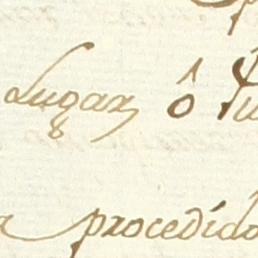 Lugar, ô
procedido